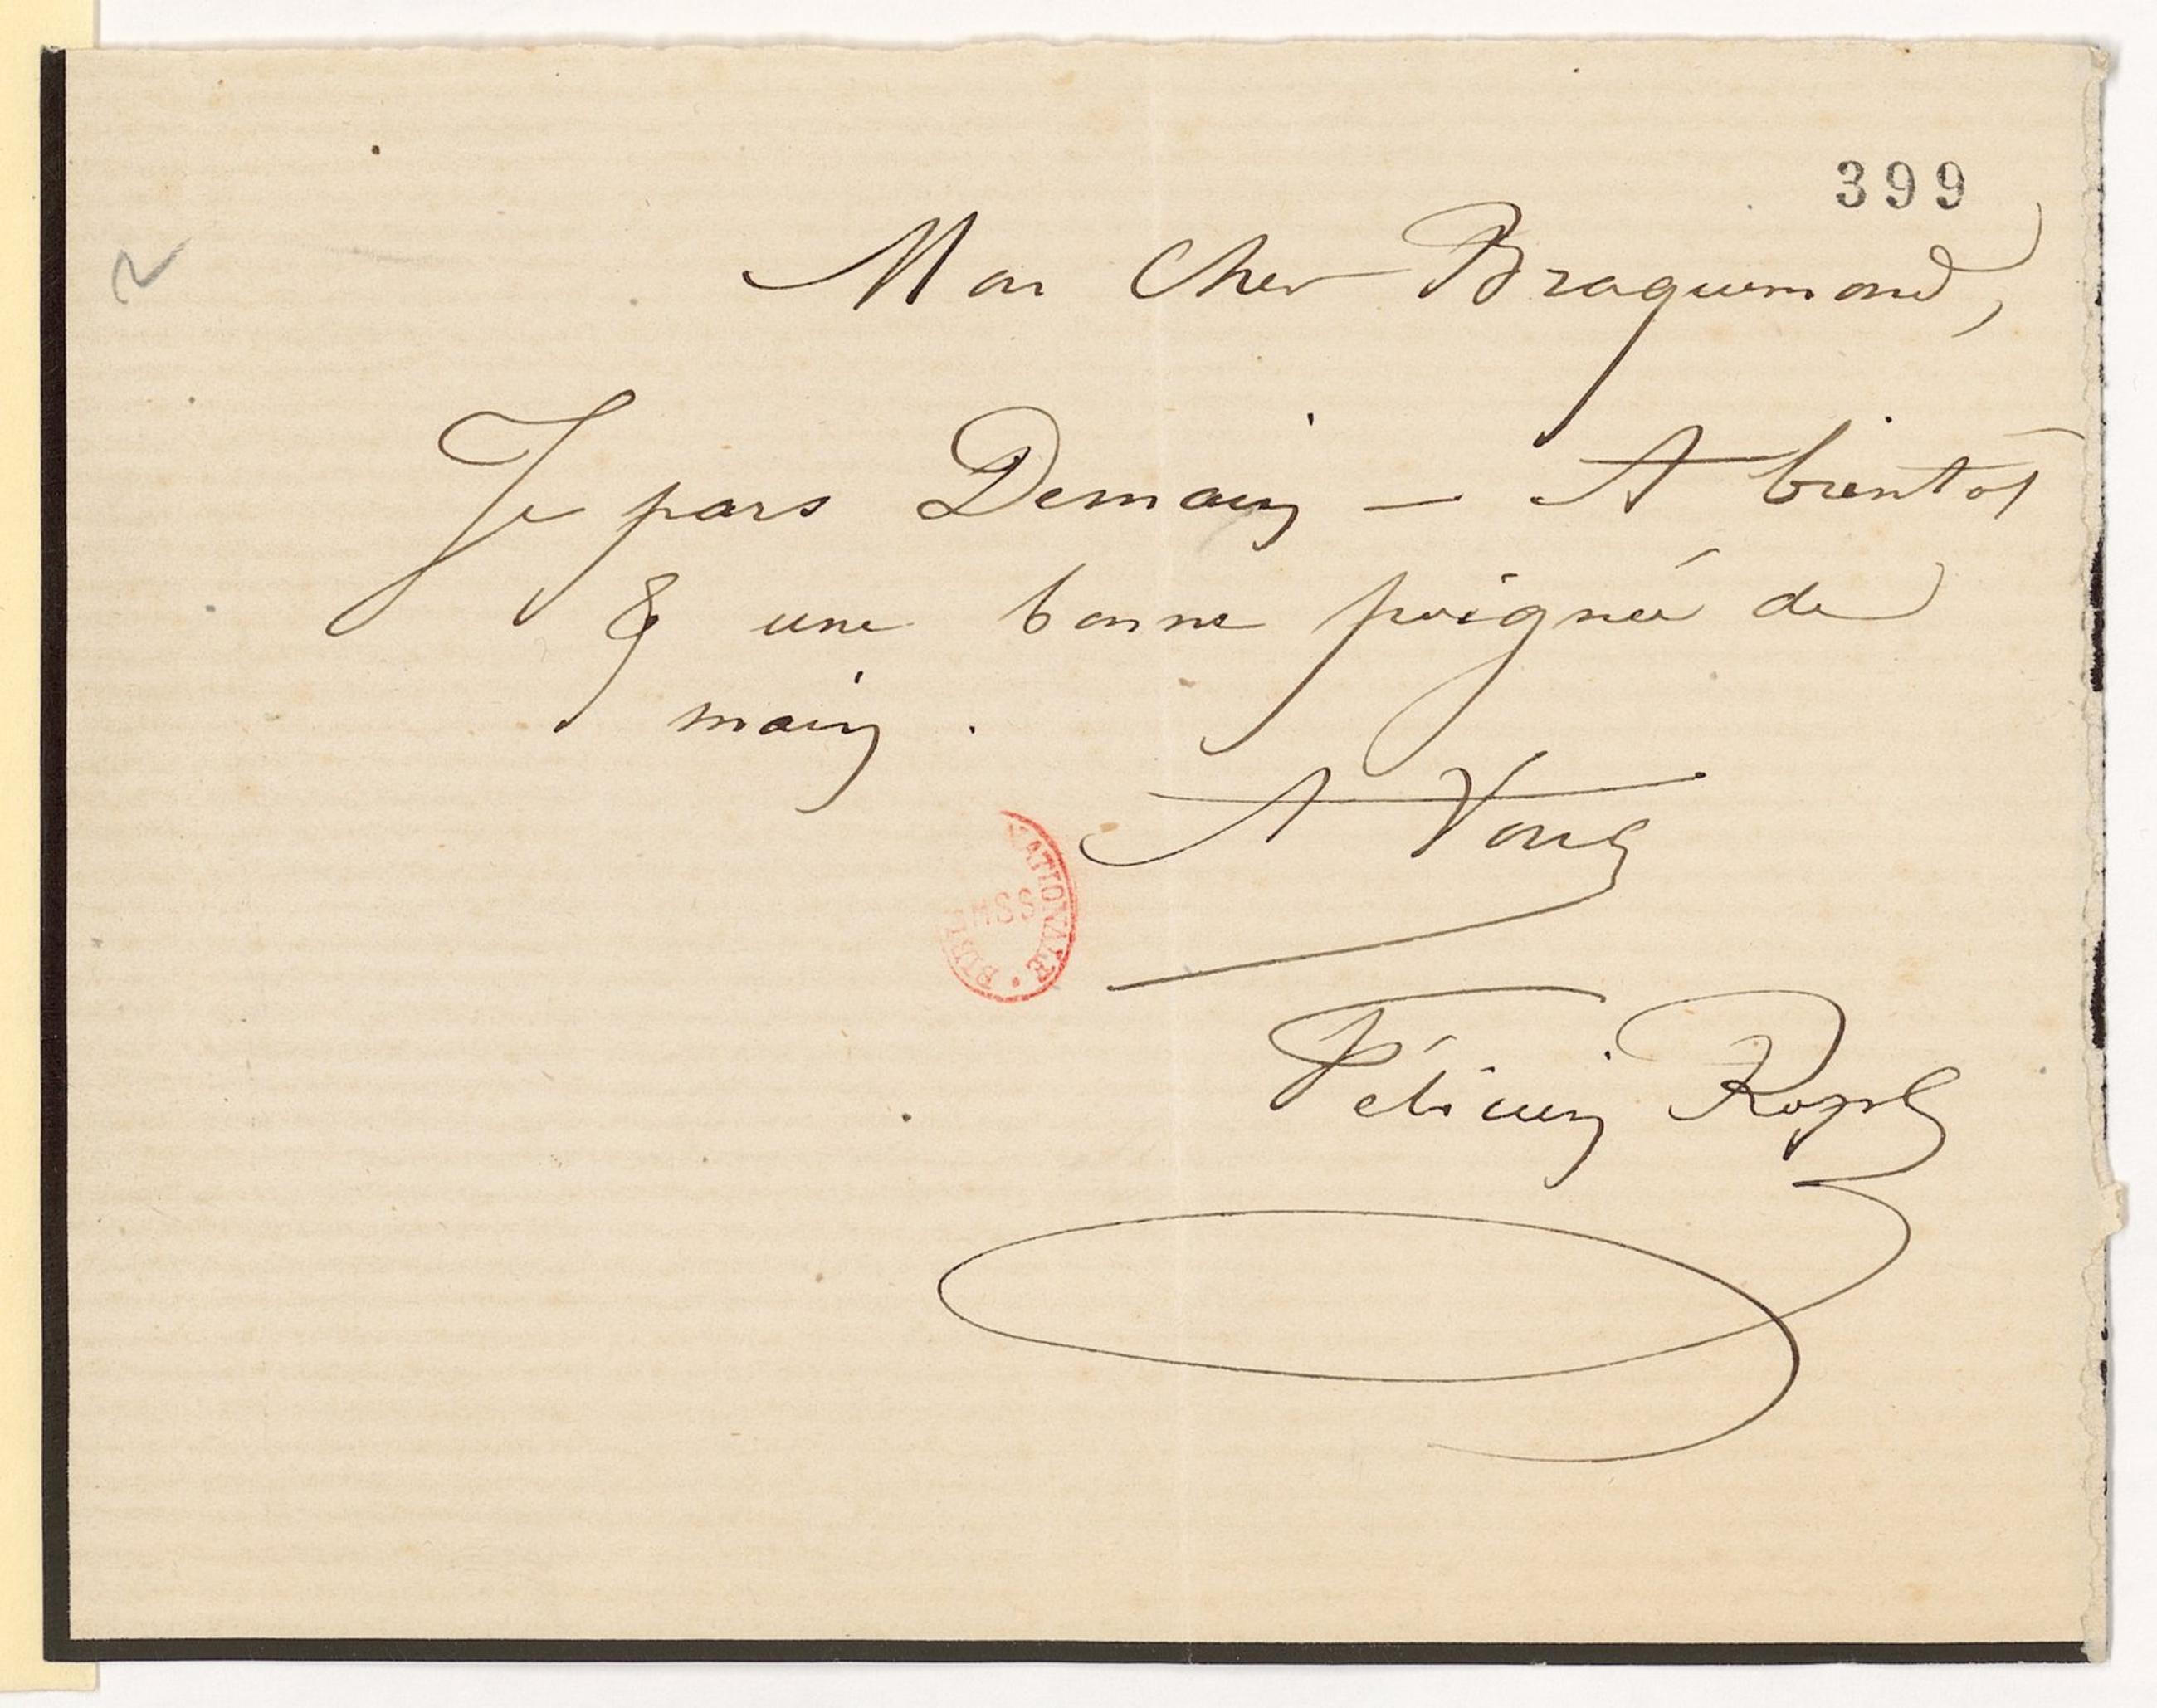 399
Mon Cher Braquemond,
Je pars Demain — A bientôt
& une bonne poignée de
main.
A Vous
Félicien Rops
NATIONALE
MSS